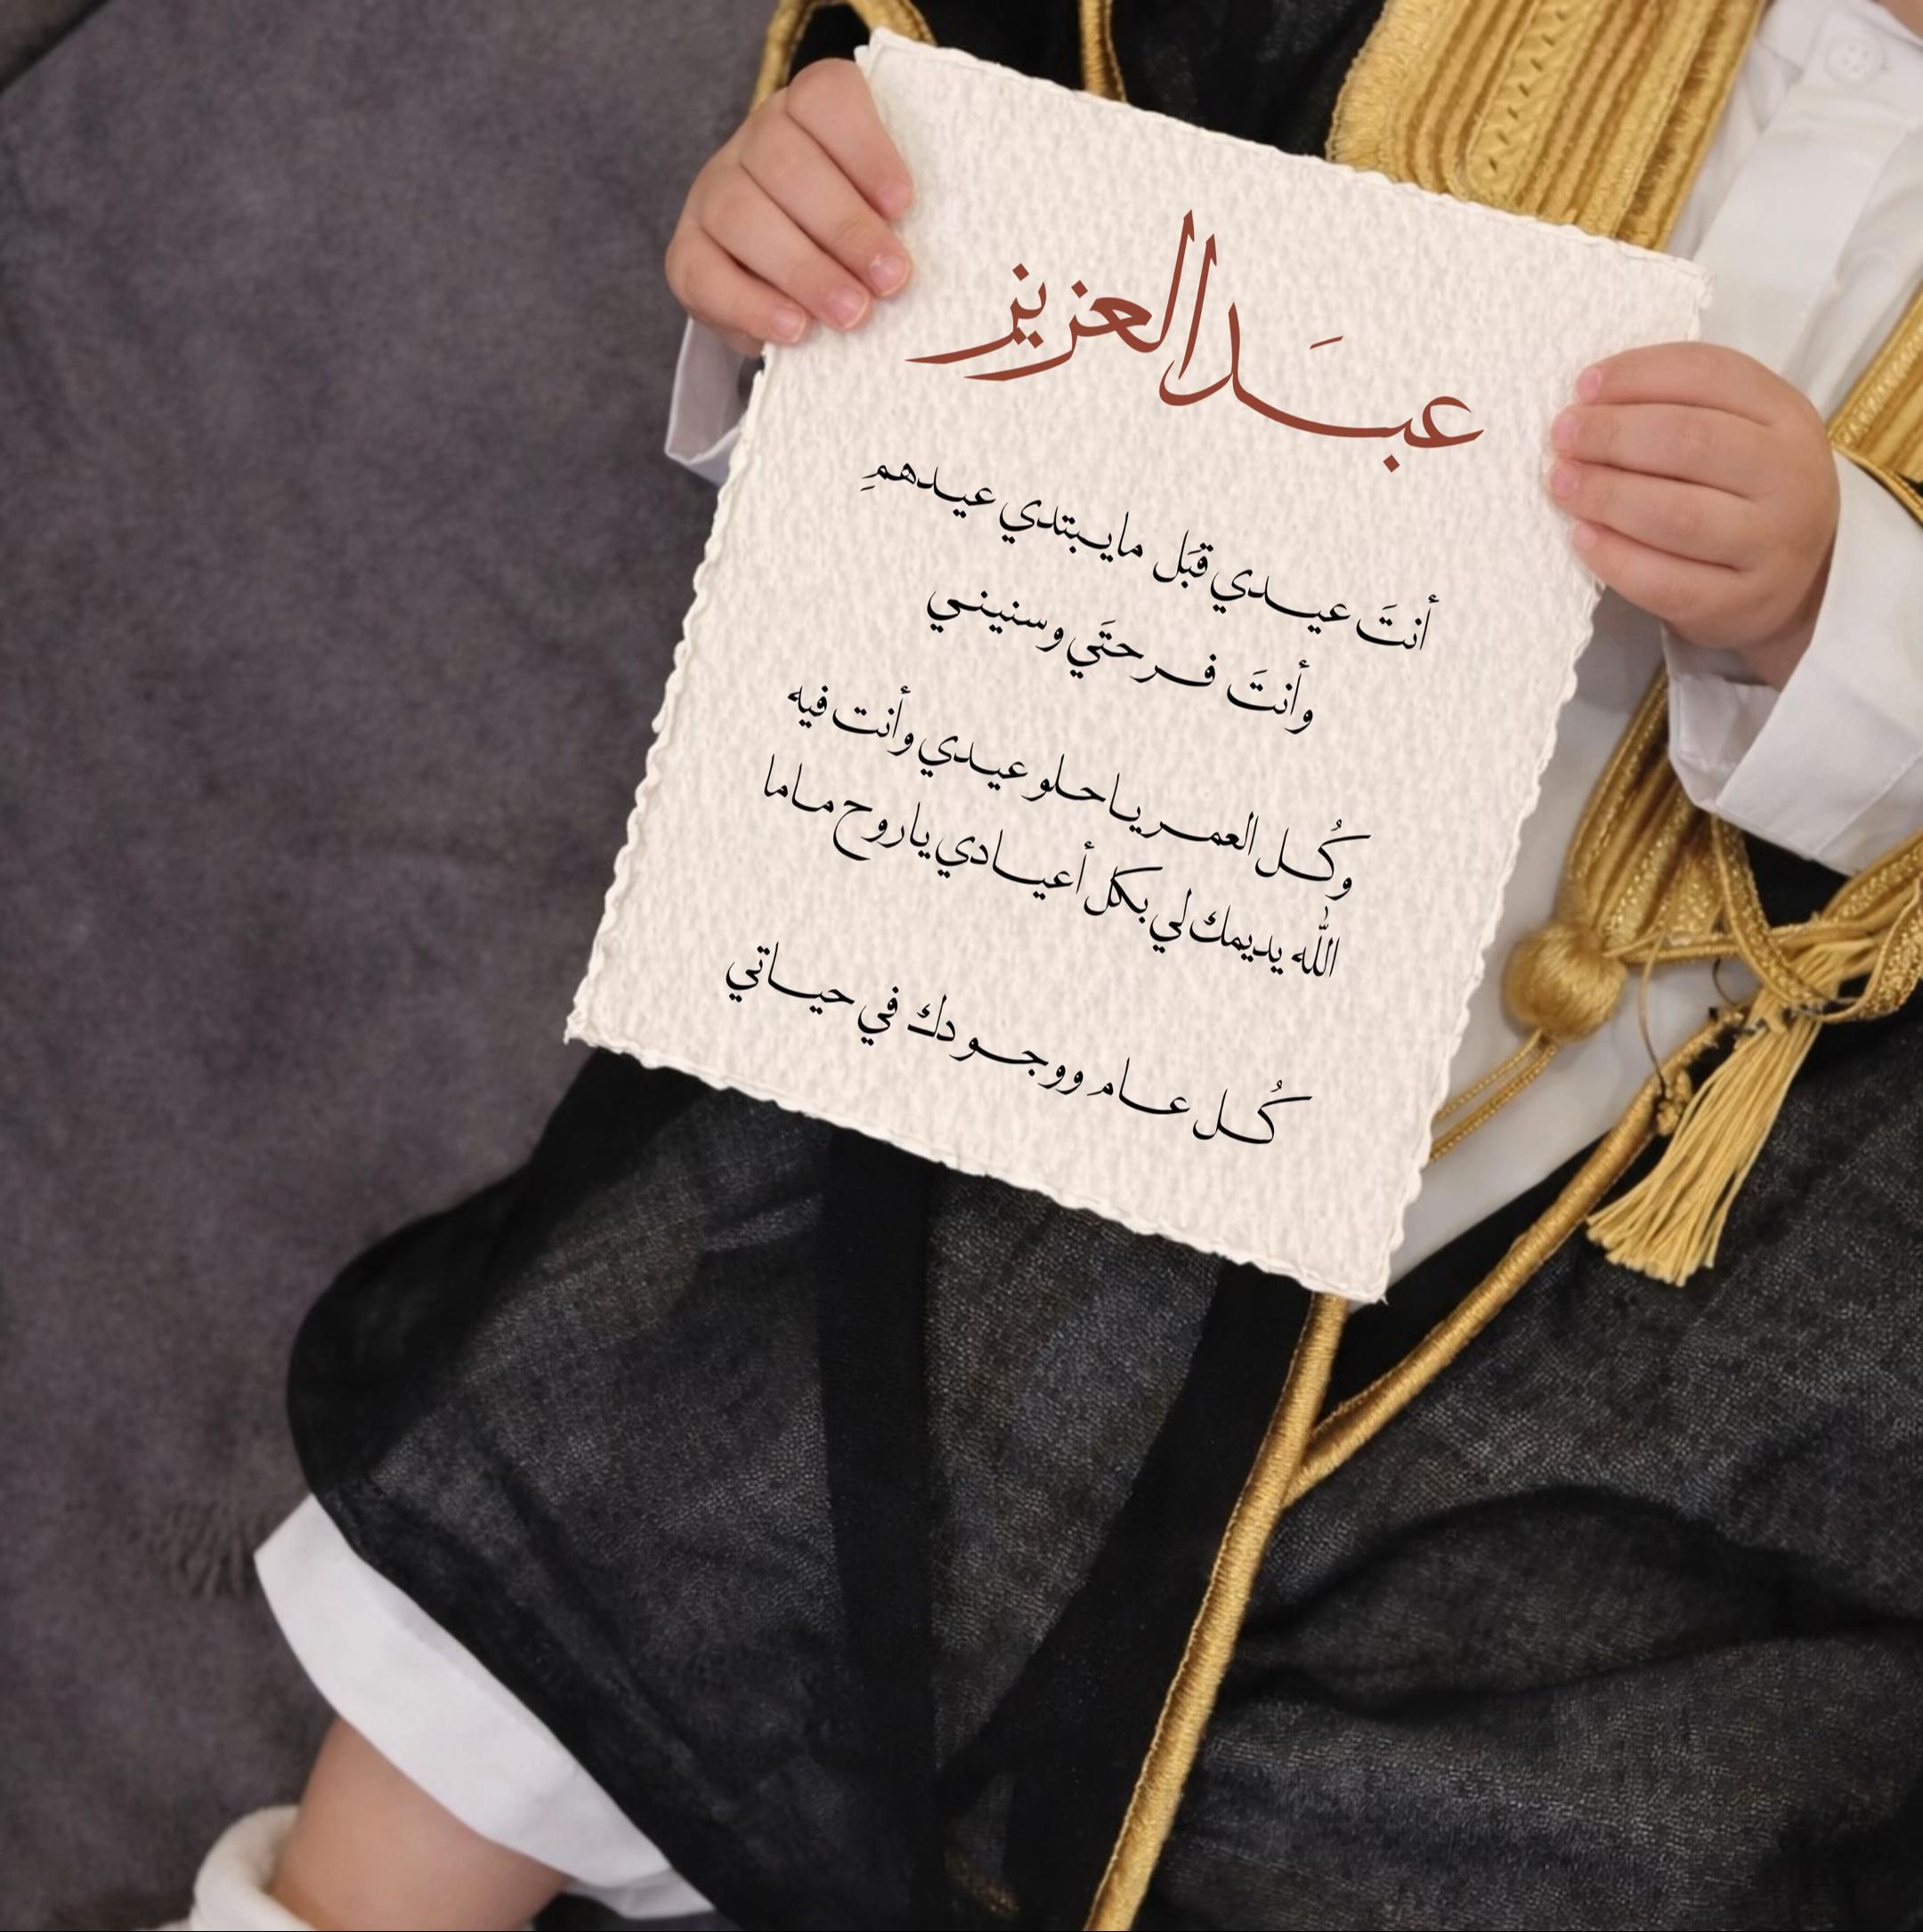 عبَدالعزيز
أنتَ عيدي قبَل مايبتدي عيدهمِ
وأنتَ فرحتَي وسنيني
وكُل العمر ياحلو عيدي وأنت فيه
اللّه يديمك لي بكل أعيادي ياروح ماما
كُل عام ووجودك في حياتي